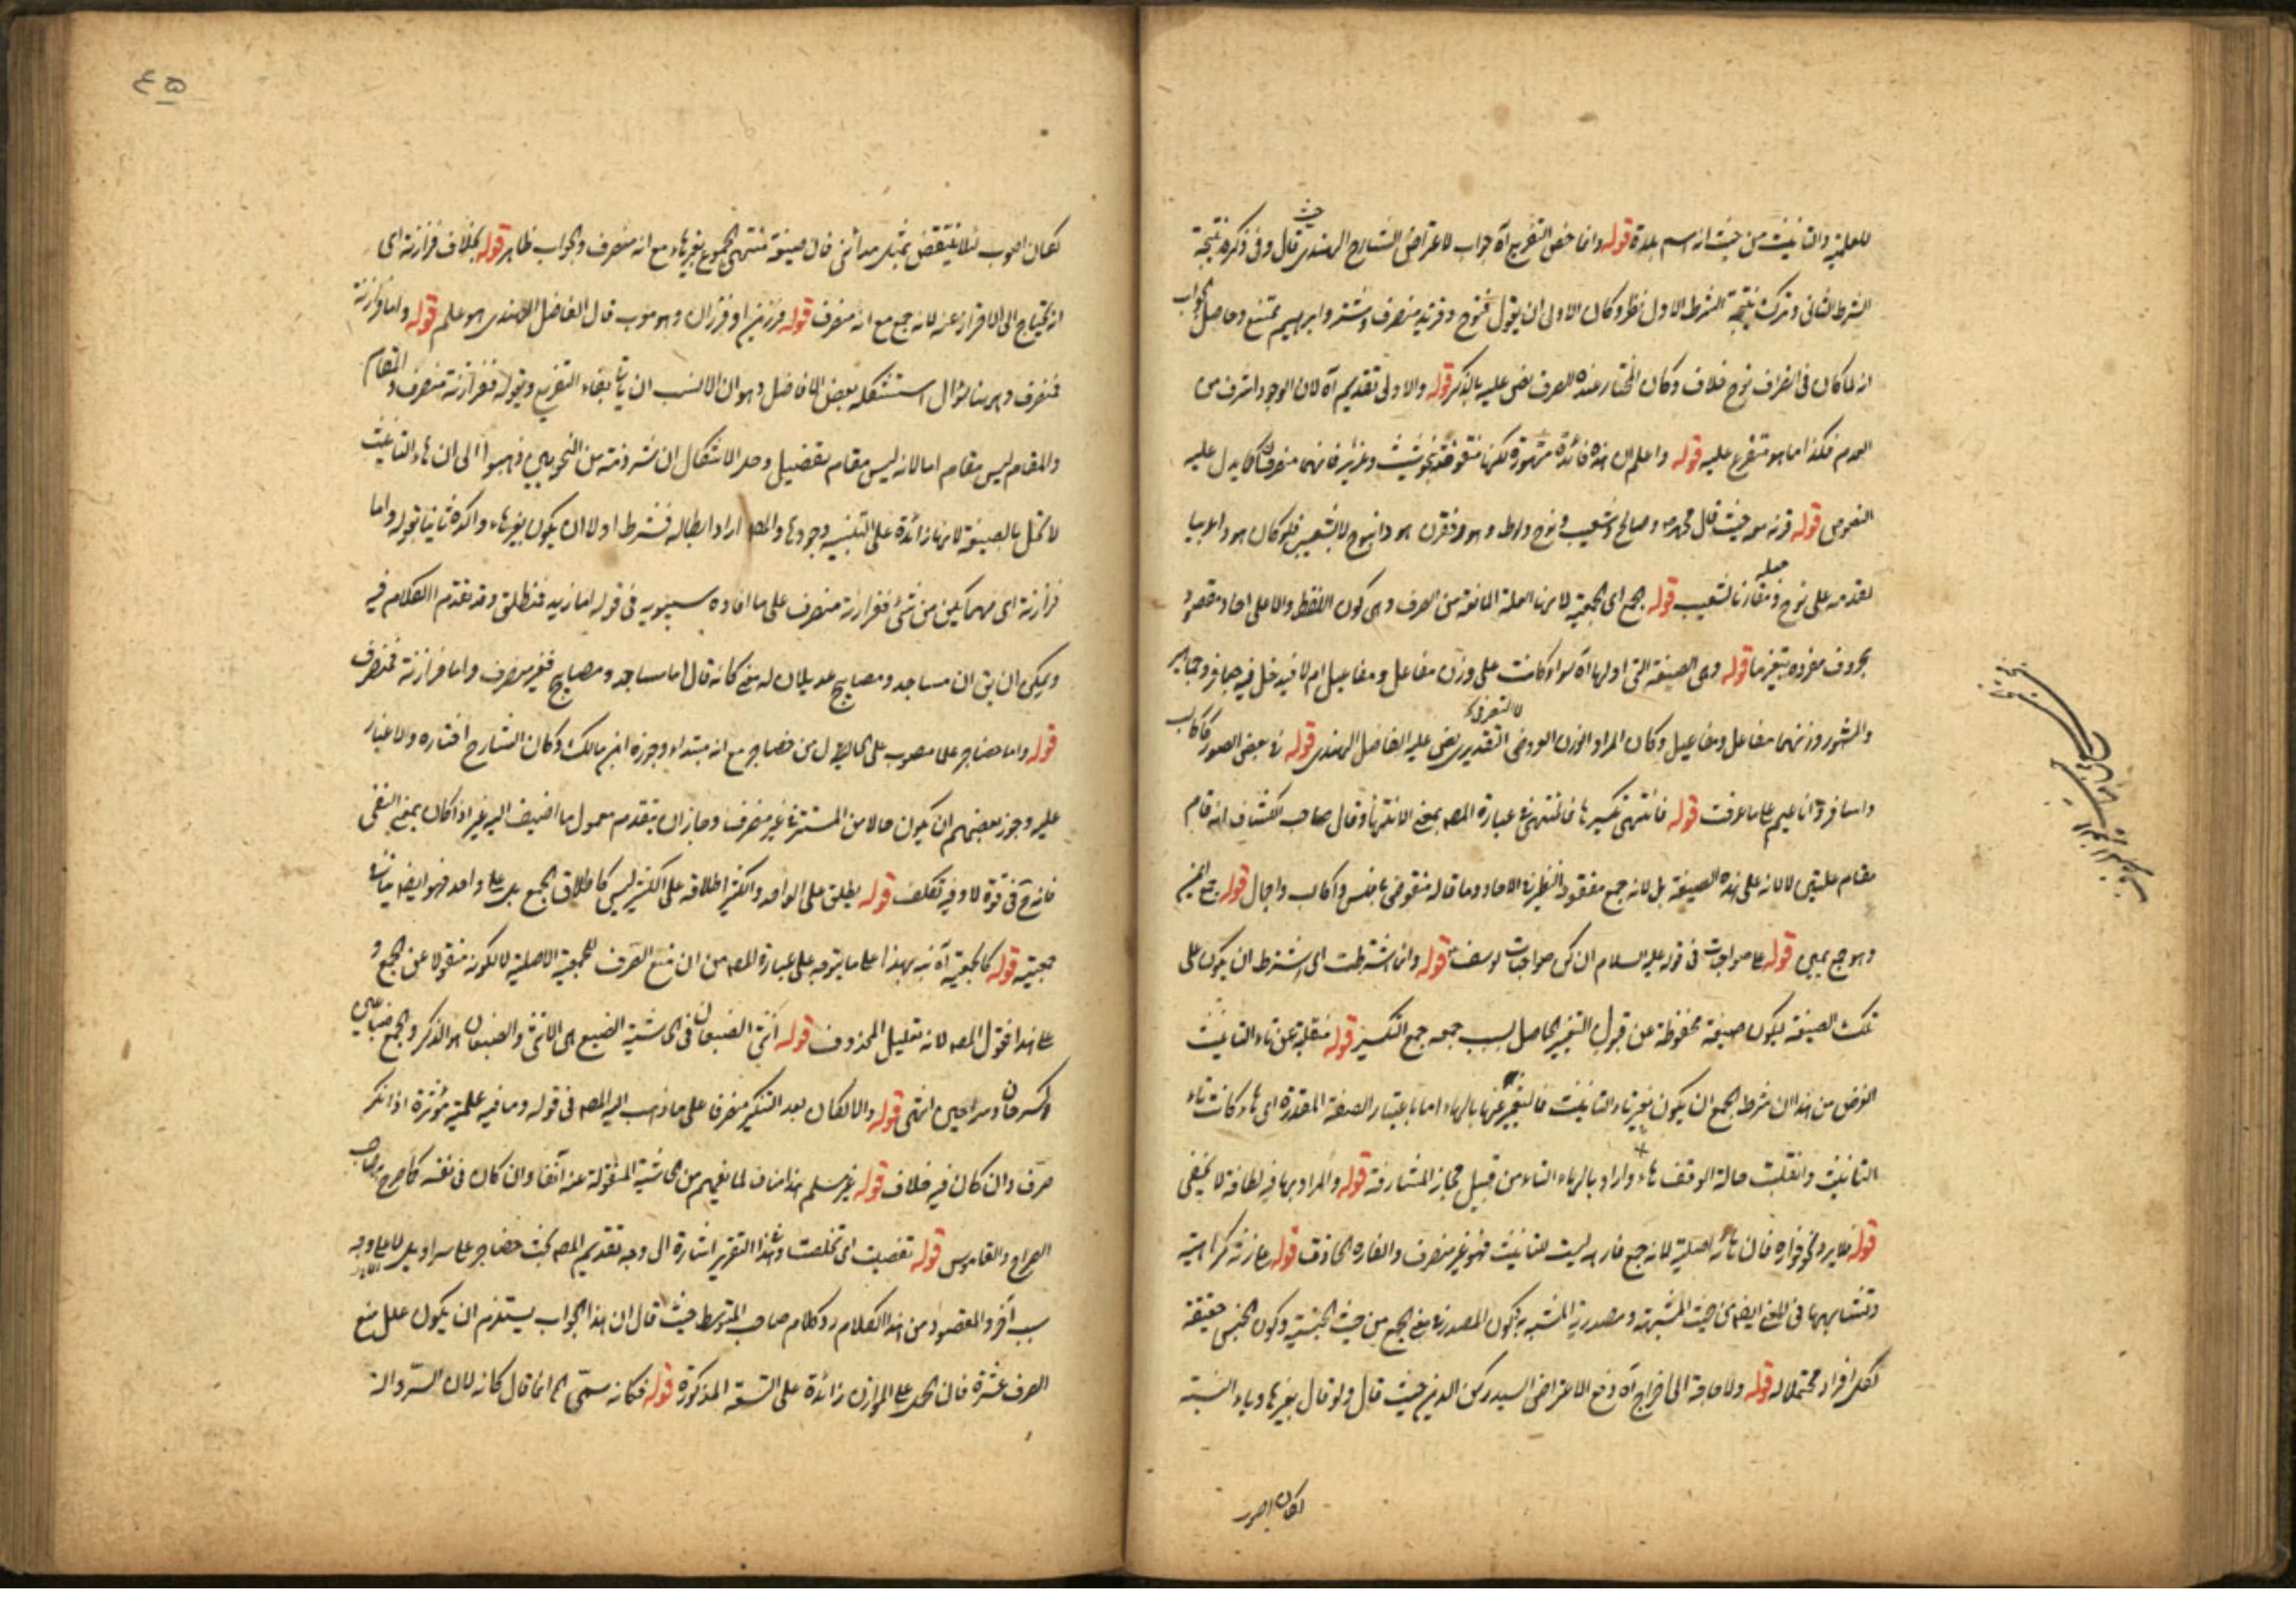 للعلمية والتانيث من حيث انه اسم بلدة قوله وانما خص التفريع آه جواب لاعتراض الشارح الهندى حيث قال وفى ذكره نتيجة
الشرط الثانى وترك نتيجة الشرط الاول نظر وكان الاولى ان يقول فنوح وفرند منصرف وشتر وابرهيم ممتنع وحاصل الجواب
انه لما كان فى انصراف نوح خلاف وكان المختار عنده الصرف نص عليه بالذكر قوله والاولى تقديم آه لان الوجود اشرف من
العدم فكذا ما هو متفرع عليه قوله واعلم ان هذه فائدة مشهورة لكنها منقوضة بشيث وعزير فانهما منصرفان كما يدل عليه
النصوص قوله قرنه مع حيث قال محمد وصالح وشعيب ونوح ولوط وهود فقرن هودا بنوح لا بشعيب فلو كان هود عربيا
لقدمه على نوح وجعله مقارنا لشعيب قوله الجمع اى الجمعية لانها العلة المانعة من الصرف وهى كون اللفظ دالا على احاد مقصودة
بحروف مفرده بتغير ما قوله وهى الصيغة التى اولها آه سواء كانت على وزن مفاعل ومفاعيل ام لا فيدخل فيه جعافر وجماهير
والمشهور وزنهما مفاعل ومفاعيل وكان المراد الوزن العروضى لا التصريفى نص عليه الفاضل الهندى قوله فى بعض الصور كاكالب
واناعيم على ما عرفت قوله فانتهى تكسيرها فالمنتهى فى عبارة المصـ بمعنى الانتهاء وقال صاحب الكشاف انه قام
مقام علتين لا لانه على هذه الصيغة بل لانه جمع مفقود النظير فى الاحاد وما قاله منقوض بافلس واكالب واجمال قوله جمع ايمن
وهو جمع يمين قوله على صواحبات فى قوله عليه السلام انكن صواحبات يوسف قوله وانما اشترطت اى اشترط ان يكون على
تلك الصيغة ليكون صيغة محفوظة عن قبول التغير الحاصل بسبب جمعه جمع التكسير قوله منقلبة عن تاء التانيث
الغرض من هذا ان شرط الجمع ان يكون بغير تاء التانيث فالتعبير عنها بالهاء اما باعتبار الصفة المقدرة اى هاء كانت تاء
التانيث وانقلبت حالة الوقف هاء او اراد بالهاء التاء من قبيل مجاز المشارفة قوله والمراد بها فيه لطافة لا تخفى
قوله فلا يرد نحو فواره فان هائه اصلية لانه جمع فاره ليست للتانيث فهو غير منصرف والفاره الحاذق قوله على زنة كراهية
وتشابهها فى المعنى ايضا من حيث المشبه ومصدرية المشبه به فيكون المصدر فى معنى الجمع من حيث الجنسية وكون الجنس حقيقة
لكل افراد محتملاله قوله ولا حاجة الى اخراج آه دفع الاعتراض السيد ركن الدين حيث قال ولو قال بغير هاء وياء النسبة
لكان اصوب
لكان اصوب لئلا ينتقض بمثل مدائنى فان صيغة منتهى الجموع بغير هاء مع انه منصرف والجواب ظاهر قوله بخلاف فرازنة اى
انه يحتاج الى الاحتراز عنه لانه جمع مع انه منصرف قوله فرزين او فرزان وهو معرب قال الفاضل الهندى هو علم قوله واما فرازنة
فمنصرف وههنا سؤال استشكله بعض الافاضل وهو ان الانسب ان ياتى بفاء التفريع ويقول ففرازنة منصرف
والمقام ليس مقام اما لانه ليس مقام تفصيل وحل الاشكال ان شرذمة من النحويين ذهبوا الى ان هاء التانيث
لا تخل بالصيغة لانها زائدة على البنية وجودها والمصـ اراد ابطاله فشرط اولا ان يكون بغير هاء واكده ثانيا بقوله واما
فرازنة اى مهما يكن من شئ ففرازنة منصرف على ما افاده سيبويه فى قوله اما زيد فمنطلق وقد تقدم الكلام فيه
ويمكن ان يق ان مساجد ومصابيح عديلان له معنى كانه قال اما مساجد ومصابيح فغير منصرف واما فرازنة فمنصرف
قوله واما حضاجر علما منصوب على الحالية من حضاجر مع انه مبتداء وجوزه ابن مالك وكان الشارح اختاره ولا غبار
عليه وجوز بعضهم ان يكون حالا من المستتر فى غير منصرف وجاز ان يتقدم معمول ما اضيف اليه غير اذا كان بمعنى النفى
فانه ح فى قوة لا وفيه تكلف قوله يطلق على الواحد والكثير اطلاقه على الكثير ليس كاطلاق الجمع بل على واحد فهو ايضا
جمعيته قوله كالجمعية آه نبه بهذا على ما يتوجه على عبارة المصـ من ان منع الصرف للجمعية الاصلية لا لكونه منقولا عن الجمع و
على هذا فقول المصـ لانه تعليل المحذوف قوله انثى الضبعان فى الحاشية الضبع هى الانثى والضبعان هو الذكر والجمع ضباعين
كسرحان وسراحين انتهى قوله والا لكان بعد التنكير منصرفا على ما ذهب اليه المصـ فى قوله وما فيه علمية مؤثرة اذا نكر
صرف وان كان فيه خلاف قوله غير مسلم هذا مناف لما يفهم من الحاشية المنقولة عنه آنفا وان كان فى نفسه كما صرح به صاحب
الصراح والقاموس قوله تفصيت اى تخلصت وفى هذا التقرير اشارة الى وجه تقديم المصـ بحث حضاجر على سراويل
سبب آخر والمقصود من هذا الكلام رد كلام صاحب المتوسط حيث قال ان هذا الجواب يستلزم ان يكون علل منع
الصرف عشرة فان الحمل على الموازن زائدة على التسعة المذكورة قوله فكانه سمى الخ انما قال كانه لان السروالة